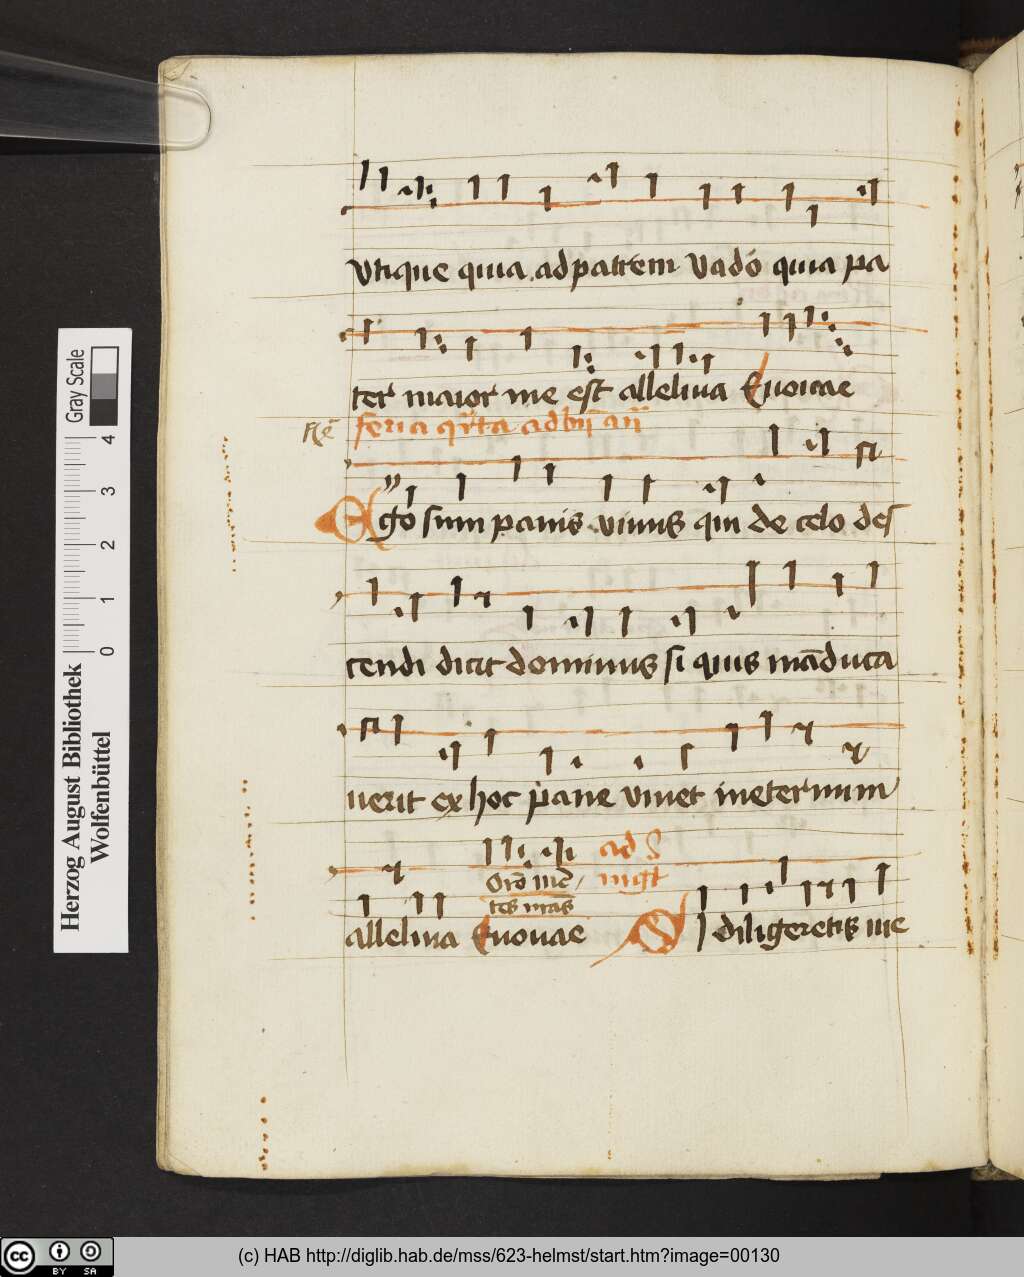 vtique quia ad patrem vado quia pa
ter maior me est alleluia Euouae
feria q̄rta ad bn̄ an̄
Ego sum panis viuus qui de celo des
cendi dicit dominus si quis māduca
uerit ex hoc pane viuet ineternum
ad S
Orō mē
mgt
tes nr̄as
alleluia Euouae SI diligeretis me
Herzog August Bibliothek
Wolfenbüttel
Gray Scale
0 1 2 3 4
cc BY SA
(c) HAB http://diglib.hab.de/mss/623-helmst/start.htm?image=00130